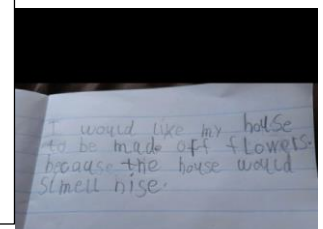 I would like my house
to be made off flowers.
because the house would
Slmell nise.